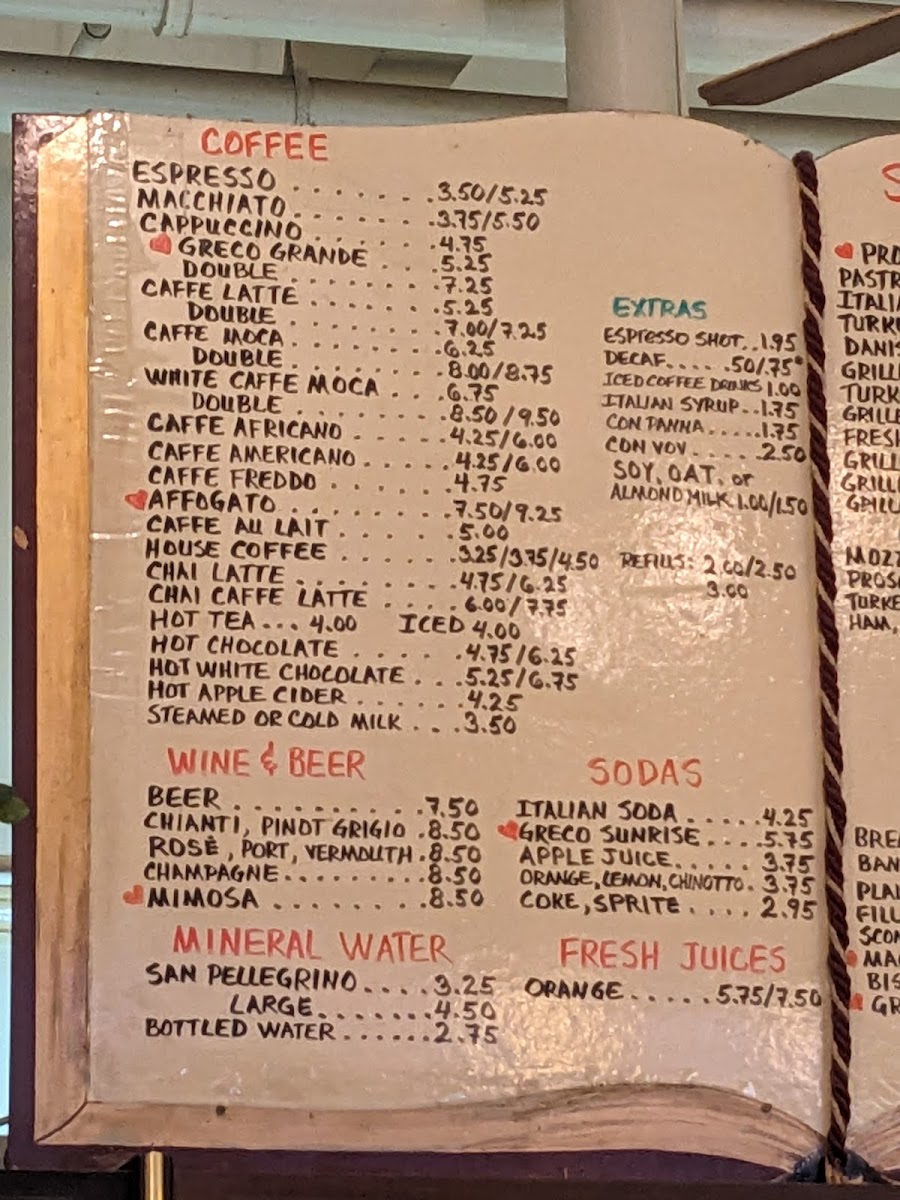 COFFEE
ESPRESSO . . . . . . . 3.50/5.25
MACCHIATO . . . . . . . 3.75/5.50
CAPPUCCINO . . . . . . 4.75
GRECO GRANDE . . . 5.25
DOUBLE . . . . . . . 7.25
CAFFE LATTE . . . . . . 5.25
DOUBLE . . . . . . . 7.00/7.25
CAFFE MOCA . . . . . . 6.25
DOUBLE . . . . . . . 8.00/8.75
WHITE CAFFE MOCA . . . 6.75
DOUBLE . . . . . . . 8.50/9.50
CAFFE AFRICANO . . . . 4.25/6.00
CAFFE AMERICANO . . . . . 4.25/6.00
CAFFE FREDDO . . . . . 4.75
AFFOGATO . . . . . . . 7.50/9.25
CAFFE AU LAIT . . . . . 5.00
HOUSE COFFEE . . . . . 3.25/3.75/4.50
CHAI LATTE . . . . . . . 4.75/6.25
CHAI CAFFE LATTE . . . . 6.00/7.75
HOT TEA... 4.00 ICED 4.00
HOT CHOCOLATE . . . . . 4.75/6.25
HOT WHITE CHOCOLATE . . . 5.25/6.75
HOT APPLE CIDER . . . . . . 4.25
STEAMED OR COLD MILK . . . 3.50
EXTRAS
ESPRESSO SHOT..1.95
DECAF.... .50/.75*
ICED COFFEE DRINKS 1.00
ITALIAN SYRUP..1.75
CON PANNA.....1.75
CON VOV.....2.50
SOY, OAT, or
ALMOND MILK 1.00/1.50
REFILLS: 2.00/2.50
3.00
WINE & BEER
BEER . . . . . . . . . 7.50
CHIANTI, PINOT GRIGIO . 8.50
ROSÈ, PORT, VERMOUTH . 8.50
CHAMPAGNE.........8.50
MIMOSA . . . . . . . . 8.50
SODAS
ITALIAN SODA .....4.25
GRECO SUNRISE....5.75
APPLE JUICE......3.75
ORANGE, LEMON, CHINOTTO. 3.75
COKE, SPRITE .... 2.95
MINERAL WATER
SAN PELLEGRINO....3.25
LARGE.......4.50
BOTTLED WATER......2.75
FRESH JUICES
ORANGE.....5.75/7.50
S
PRO
PASTR
ITALIA
TURK
DANIS
GRILL
TURK
GRILLE
FRESH
GRILL
GRILL
GRILL
MOZZ
PROS
TURKE
HAM,
BREA
BAN
PLAI
FILL
SCON
MA
BIS
GR